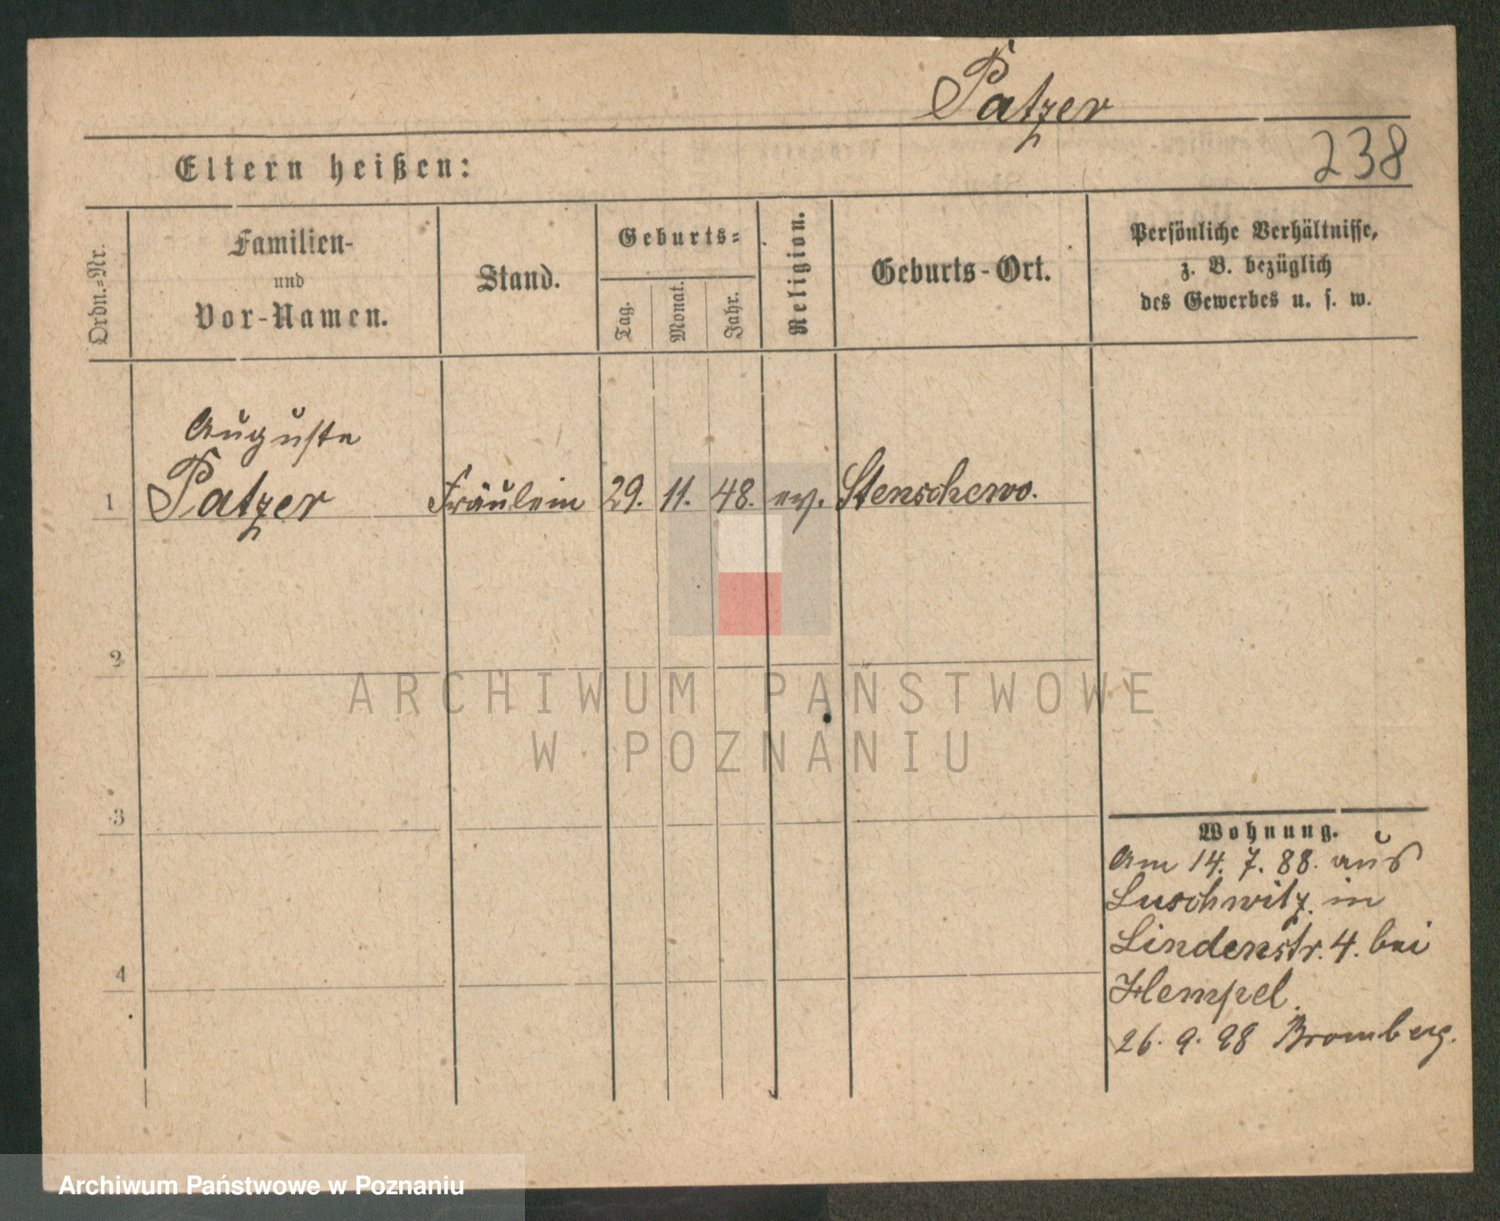 Patzer
238
Eltern heißen:
Ordn.-Nr.
Familien-
und
Vor-Namen.
Stand.
Geburts-
Tag.
Monat.
Jahr.
Religion.
Geburts-Ort.
Persönliche Verhältnisse,
z. B. bezüglich
des Gewerbes u. s. w.
Auguste
1 Patzer Fräulein 29. 11. 48. ev. Stenschewo.
2
3
4
Wohnung.
Am 14. 7. 88. aus
Luschwitz in
Lindenstr. 4. bei
Hempel.
26. 9. 98 Bromberg.
ARCHIWUM PAŃSTWOWE
W POZNANIU
Archiwum Państwowe w Poznaniu